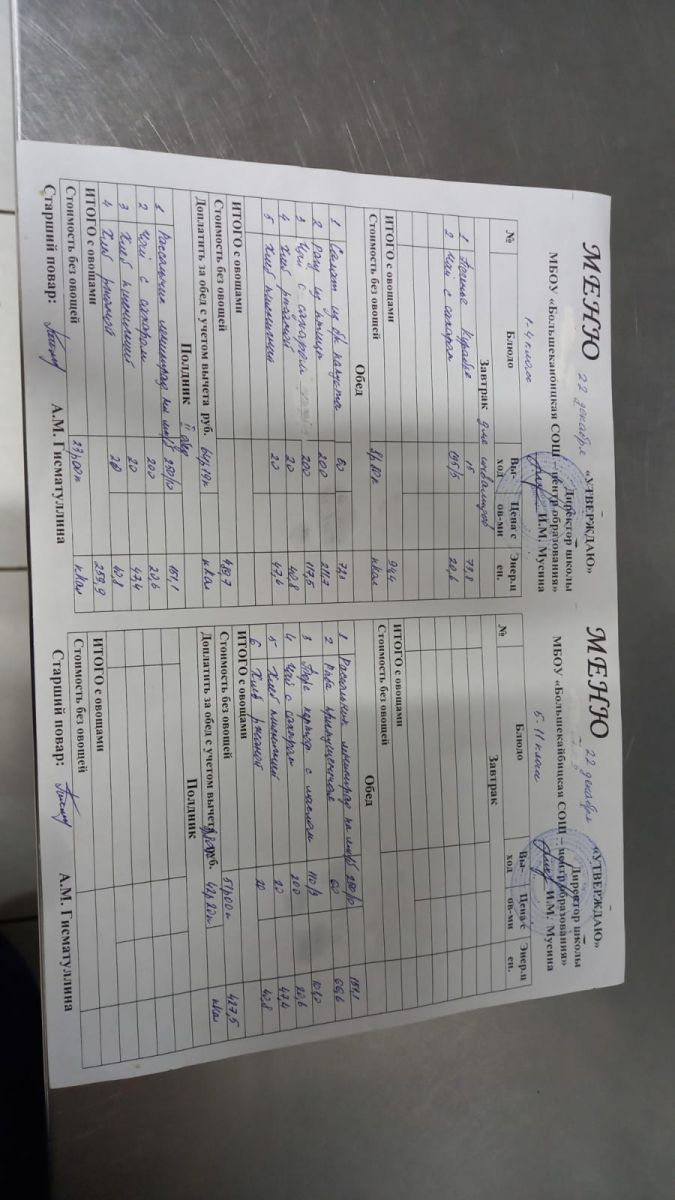 МЕНЮ 22 декабря
«УТВЕРЖДАЮ»
Директор школы
МБОУ «Большекайбицкая СОШ – центр образования»
И.М. Мусина
1-4 класс
№ Блюдо Вы-ход Цена с ов-ми Энер.ц ен.
Завтрак для инвалидов
1 Печенье Курабье 15 73,8
2 Чай с сахаром 195/5 20,6
ИТОГО с овощами 94,4
Стоимость без овощей ккал
Обед
1 Салат из св капусты 60
2 Рагу из птицы 200
3 Чай с сахаром 200 117,5
4 Хлеб ржаной 20 40,8
5 Хлеб пшеничный 20 47,6
ИТОГО с овощами 489,7
Стоимость без овощей ккал
Доплатить за обед с учетом вычета руб. 64р19к
Полдник II обед
1 Рассольник ленинград на 250/10 151,1
2 Чай с сахаром 200 20,6
3 Хлеб пшеничный 20 47,4
4 Хлеб ржаной 20 40,8
ИТОГО с овощами 259,9
Стоимость без овощей 27р00к ккал
Старший повар: А.М. Гисматуллина
МЕНЮ 22 декабря
«УТВЕРЖДАЮ»
Директор школы
МБОУ «Большекайбицкая СОШ – центр образования»
И.М. Мусина
5-11 класс
№ Блюдо Вы-ход Цена с ов-ми Энер.ц ен.
Завтрак
ИТОГО с овощами
Стоимость без овощей
Обед
1 Рассольник ленинград на 250/10 151,1
2 Рыба припущенная 60 66,6
3 Пюре картоф с маслом 110/3
4 Чай с сахаром 200 20,6
5 Хлеб пшеничный 20 47,4
6 Хлеб ржаной 20 40,8
ИТОГО с овощами 427,5
Стоимость без овощей 51р00к ккал
Доплатить за обед с учетом вычета руб. 42р20к
Полдник
ИТОГО с овощами
Стоимость без овощей
Старший повар: А.М. Гисматуллина